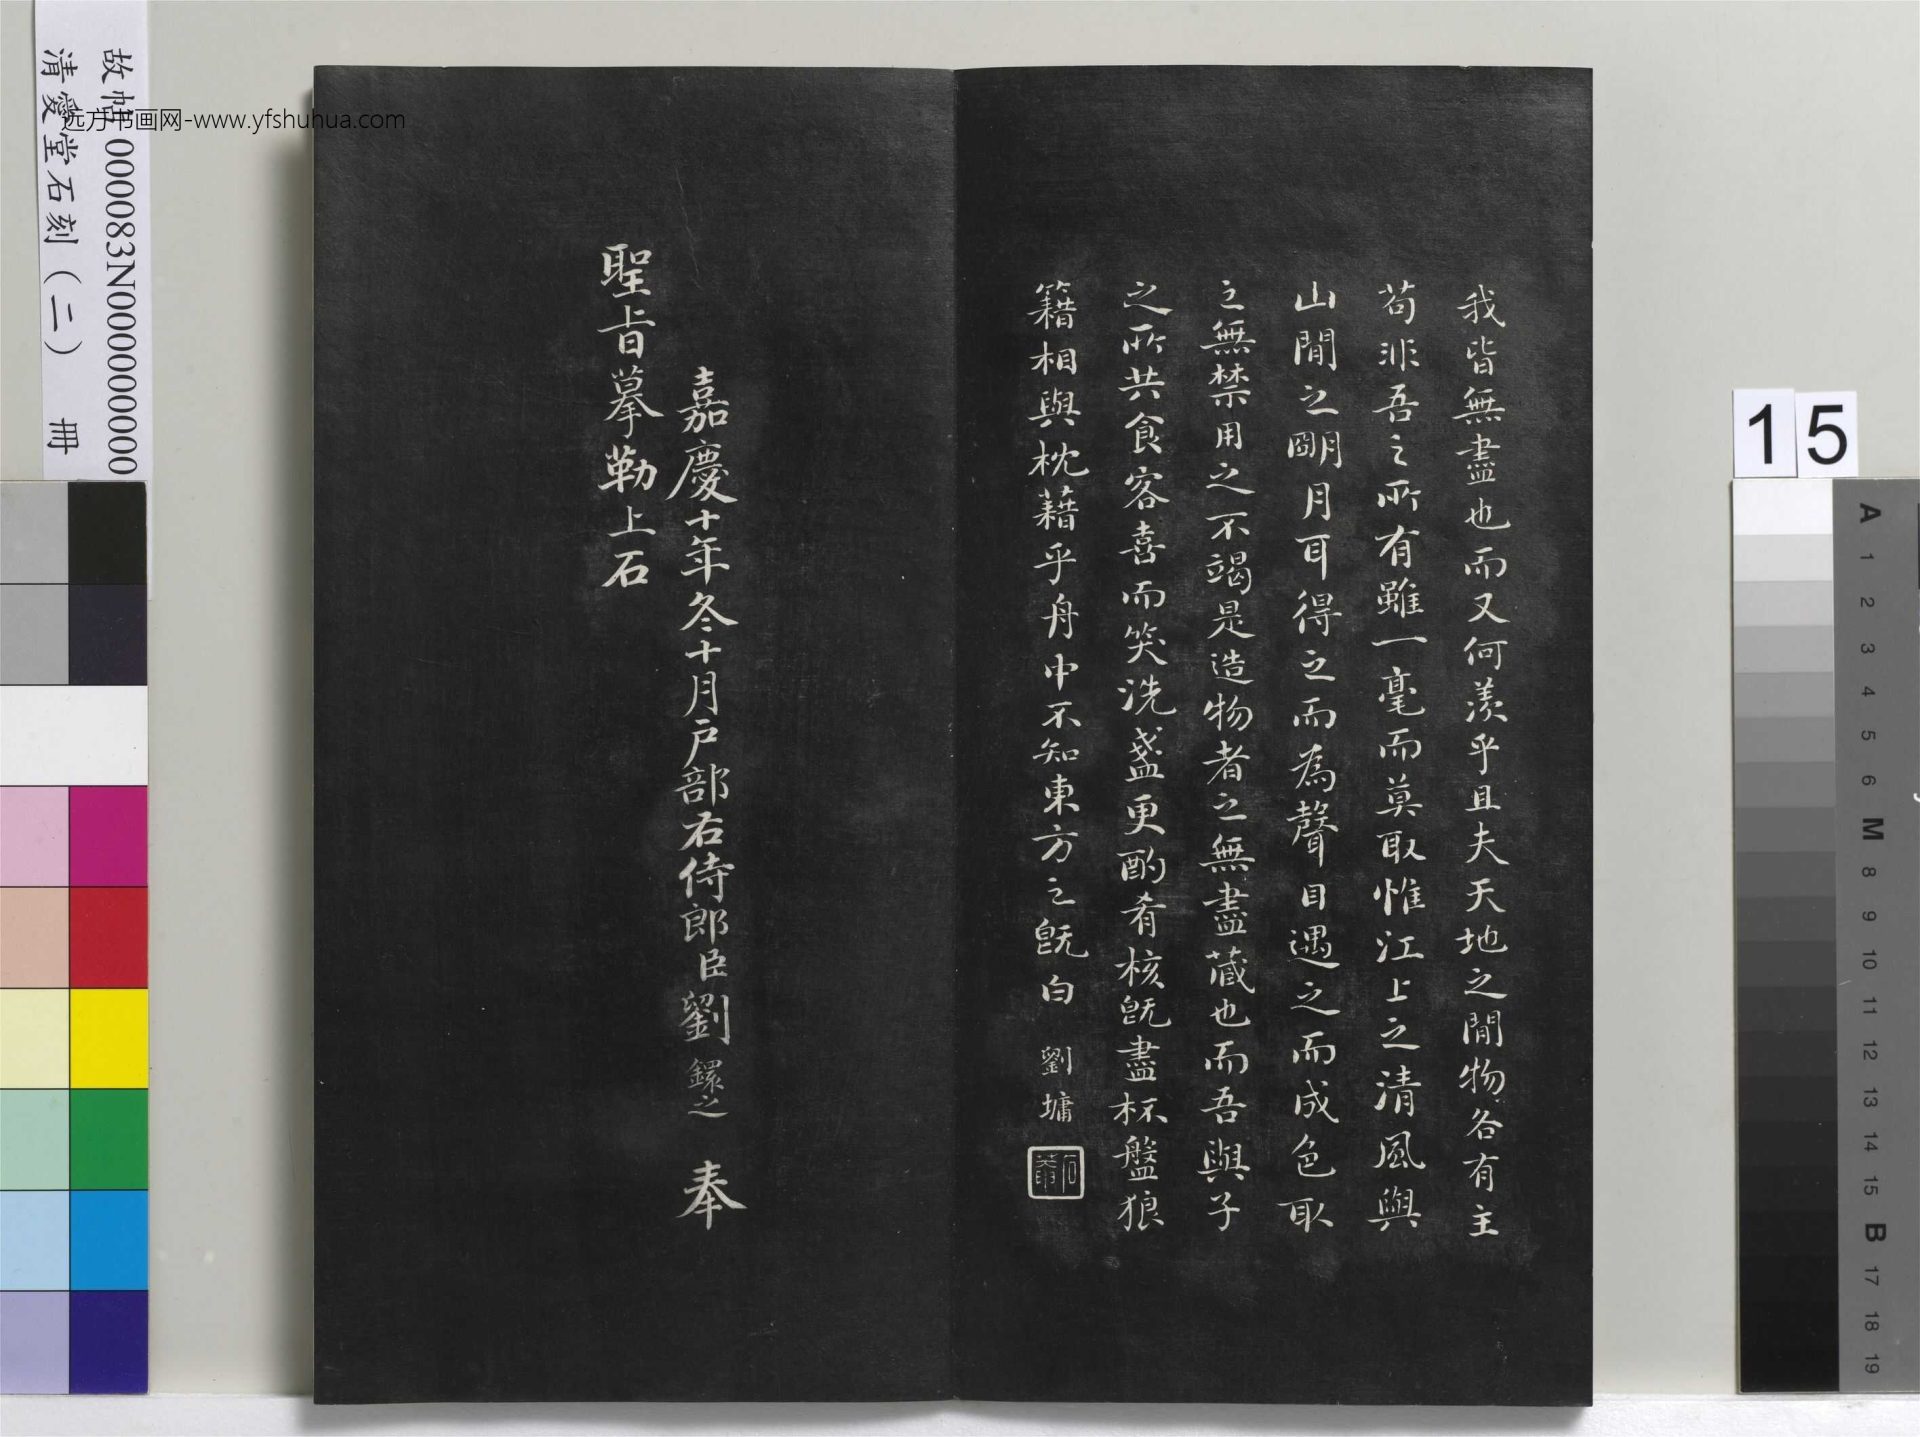 我皆無盡也而又何羨乎且夫天地之間物各有主
苟非吾之所有雖一毫而莫取惟江上之清風與
山間之明月耳得之而為聲目遇之而成色取
之無禁用之不竭是造物者之無盡藏也而吾與子
之所共食客喜而笑洗盞更酌肴核既盡杯盤狼
籍相與枕藉乎舟中不知東方之既白 劉墉
石菴
嘉慶十年冬十月戶部右侍郎臣劉鐶之 奉
聖旨摹勒上石
故帖000083N000000000
清愛堂石刻(二) 冊
远方书画网-www.yfshuhua.com
15
A 1 2 3 4 5 6 M 8 9 10 11 12 13 14 15 B 17 18 19